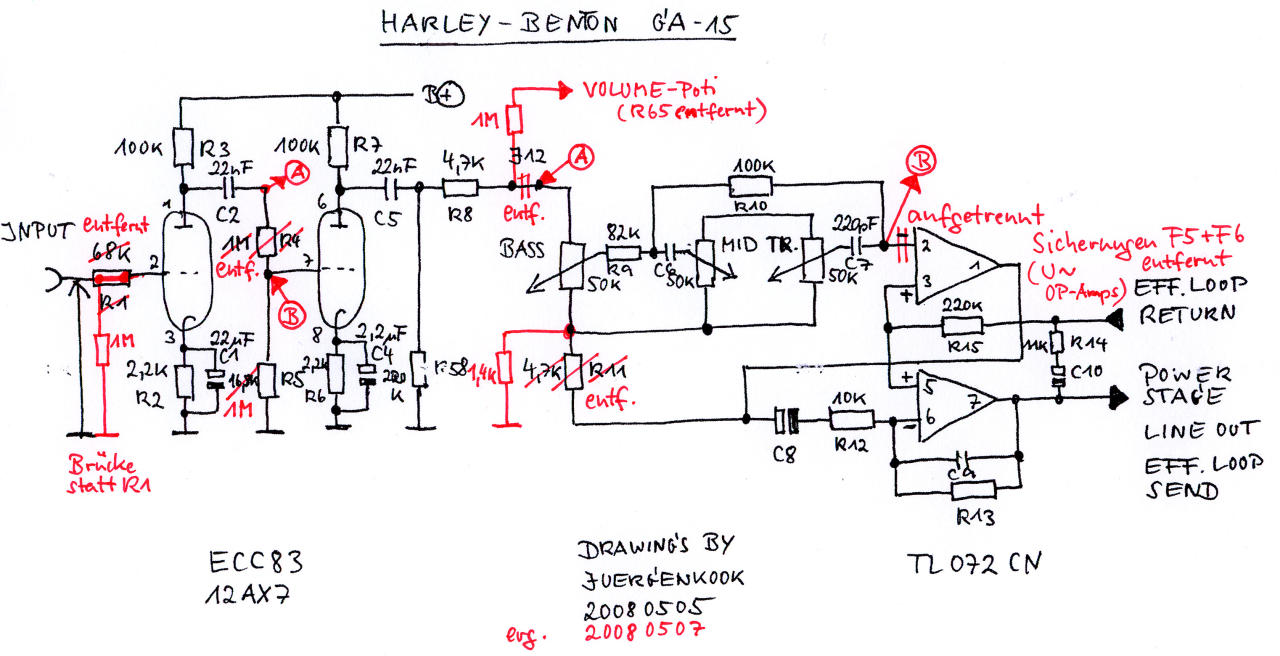 HARLEY-BENTON GA-15
B+
VOLUME-Poti
(R65 entfernt)
1M
100K
R3
100K
R7
22nF
C2
A
22nF
C5
4,7K
R8
J12
A
entf.
100K
R10
B
1
6
INPUT
entfernt
68K
R1
2
1M
R4
entf.
7
B
BASS
50K
82K
R9
C6
50K
MID
TR.
50K
220pF
C7
aufgetrennt
2
3
+
1
Sicherungen F5+F6
entfernt
(U~
OP-Amps)
EFF. LOOP
RETURN
3
22µF
C1
2,2K
R2
1M
R5
1M
8
2,2µF
C4
2,2K
R6
220
K
R58
1,4K
4,7K
R11
entf.
220K
R15
11K
R14
C10
+
5
6
-
7
POWER
STAGE
LINE OUT
EFF. LOOP
SEND
C8
10K
R12
C9
R13
Brücke
statt R1
ECC83
12AX7
DRAWING'S BY
JUERGENKOOK
20080505
erg. 20080507
TL072CN